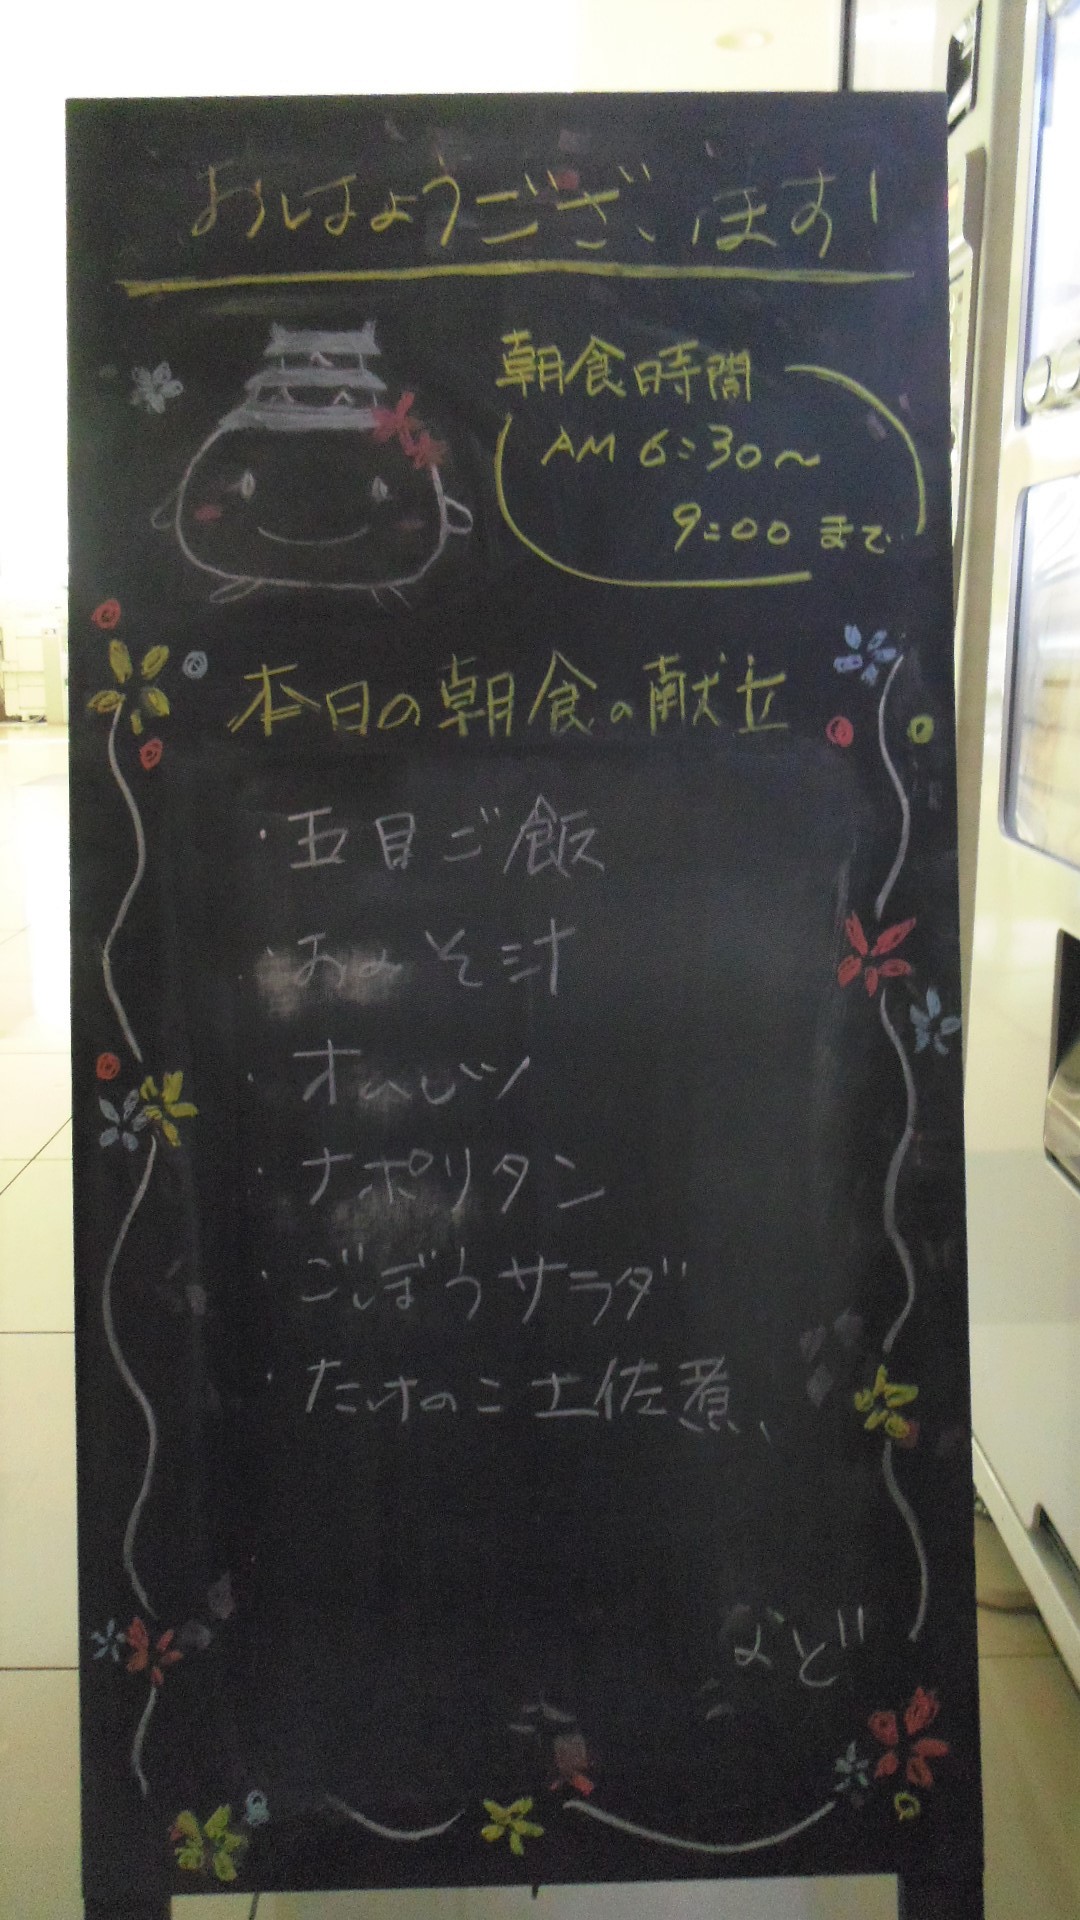 おはようございます!
朝食時間
AM 6:30～
9:00 まで
本日の朝食の献立
・五目ご飯
・おみそ汁
・オムレツ
・ナポリタン
・ごぼうサラダ
・たけのこ土佐煮
など